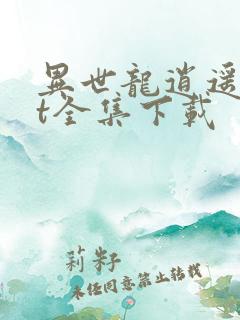 異世龍逍遥
t全集下載
莉籽
未经同意禁止转载